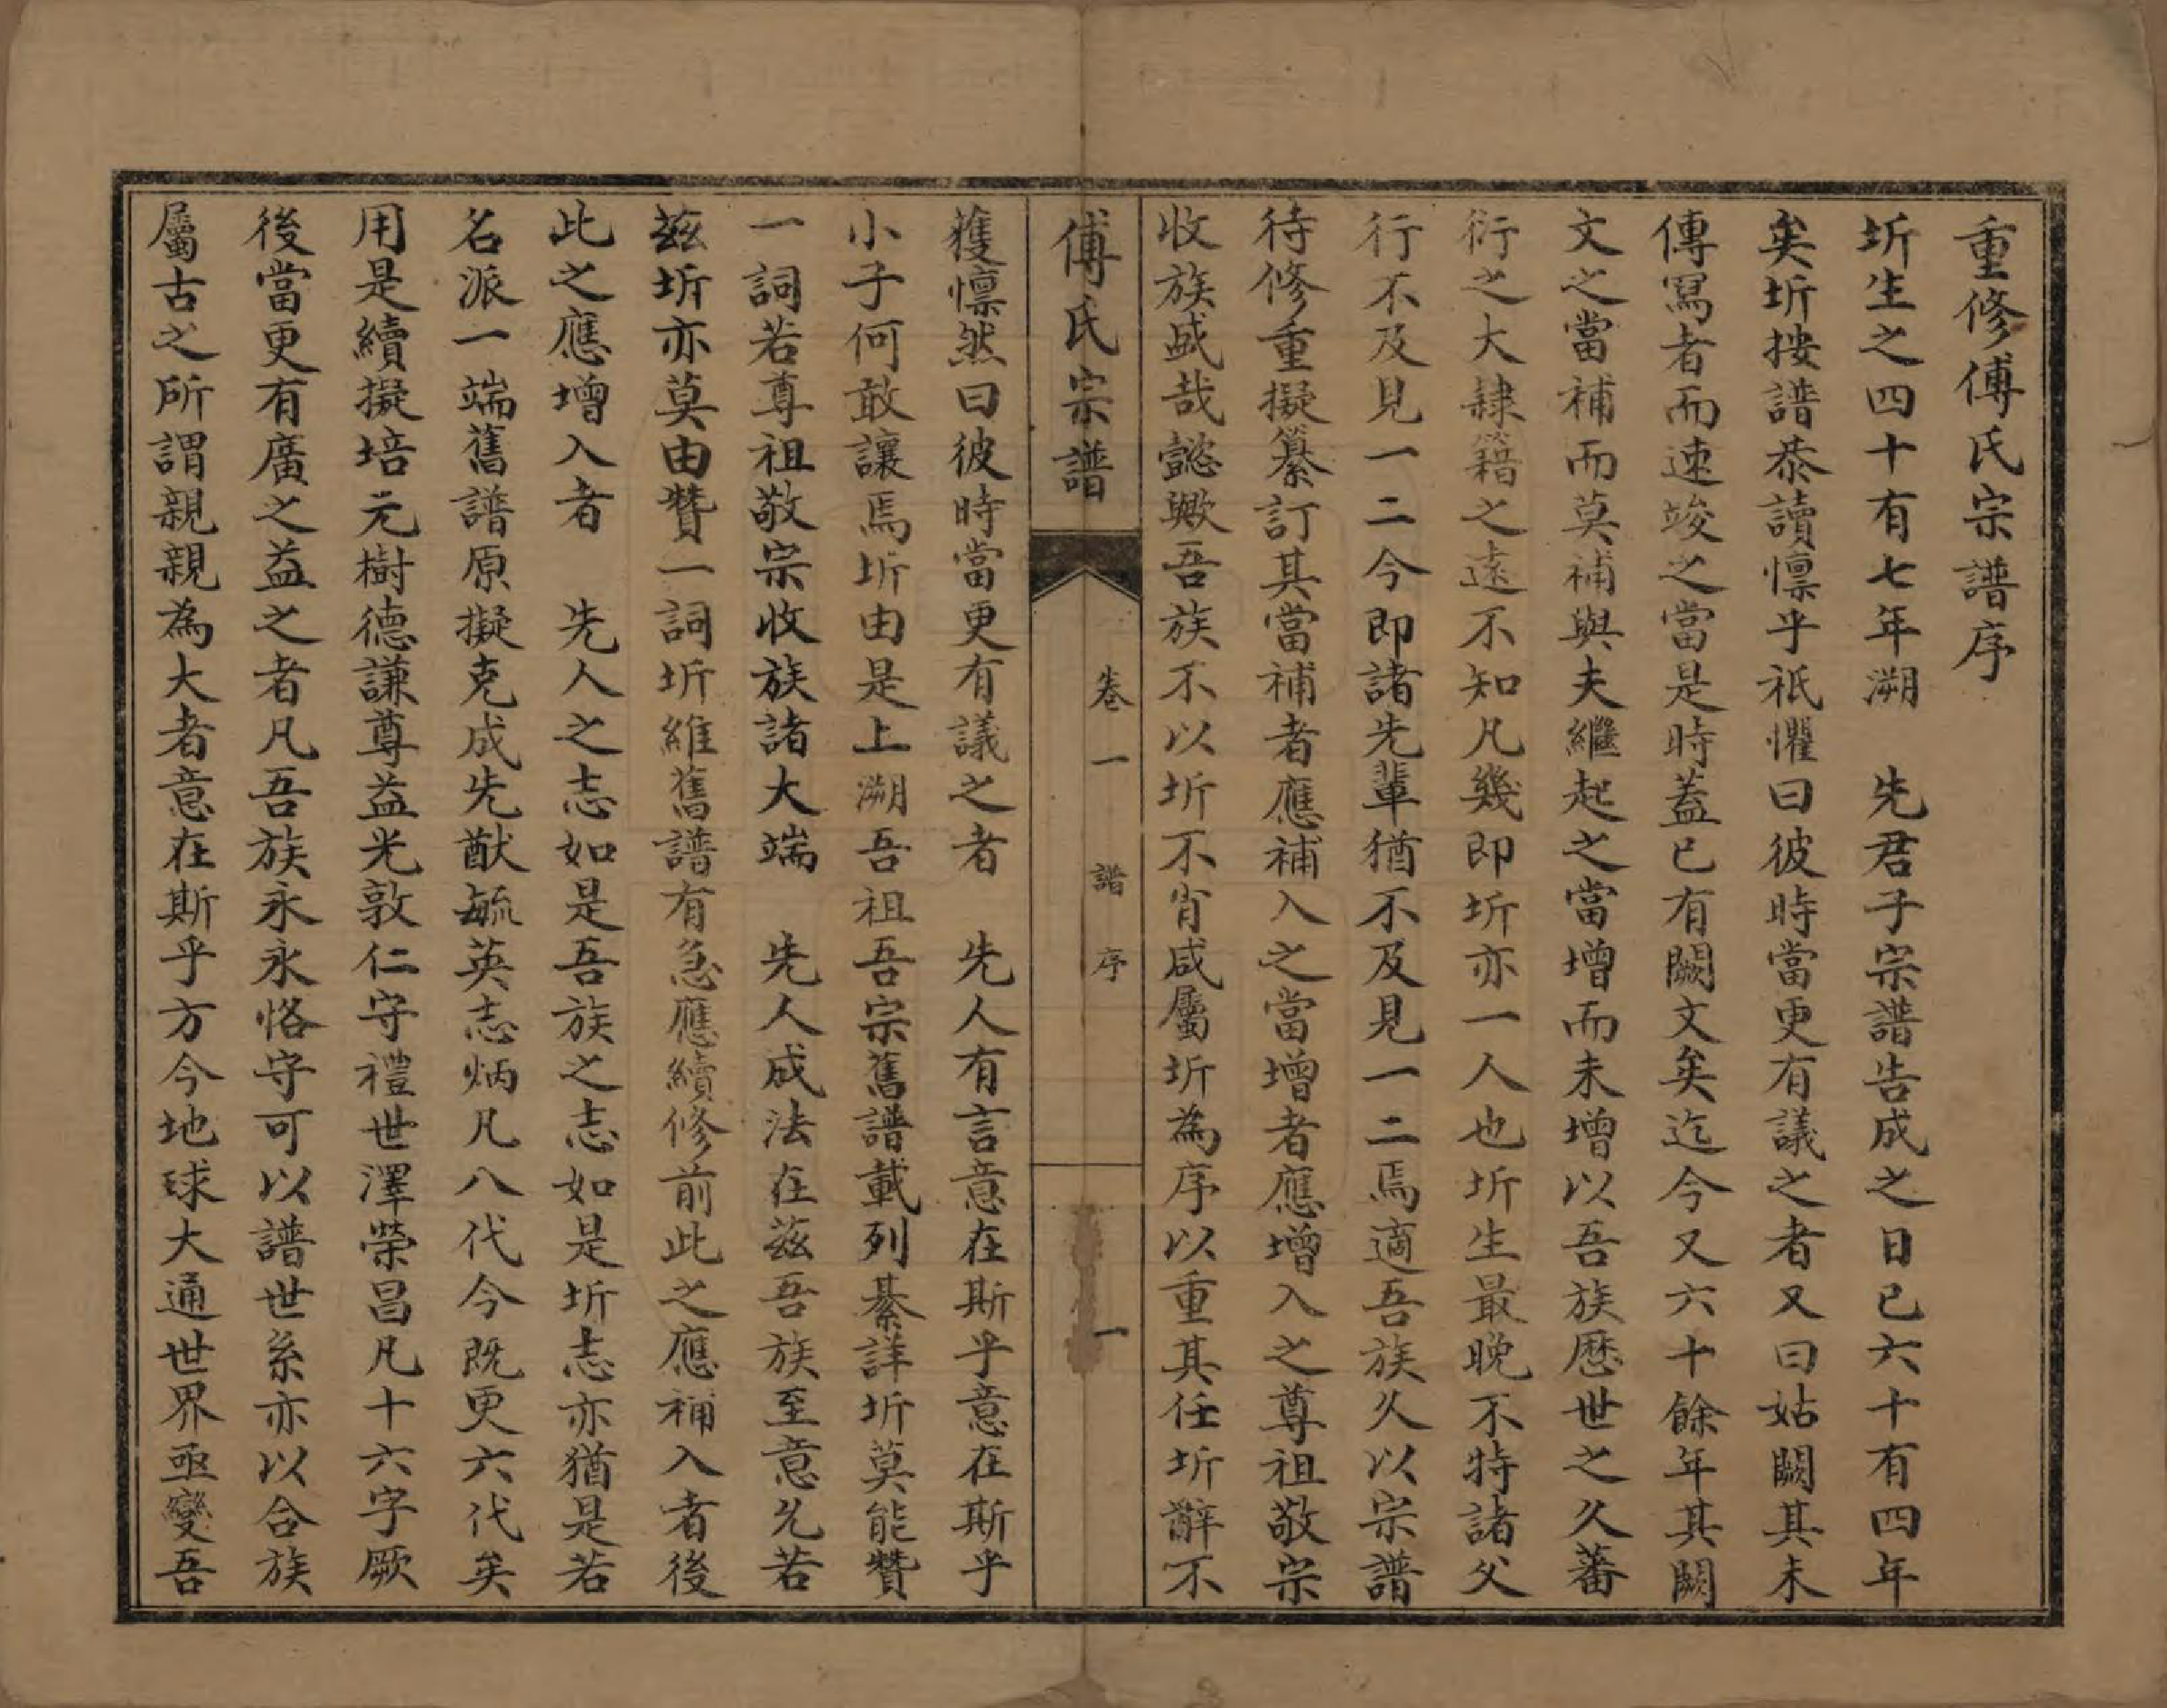 重修傅氏宗譜序
圻生之四十有七年溯　先君子宗譜告成之日已六十有四年
矣圻按譜恭讀懍乎祇懼曰彼時當更有議之者又曰姑闕其未
傳寫者而速竣之當是時蓋已有闕文矣迄今又六十餘年其闕
文之當補而莫補與夫繼起之當增而未增以吾族歷世之久蕃
衍之大隸籍之遠不知凡幾即圻亦一人也圻生最晚不特諸父
行不及見一二今即諸先輩猶不及見一二焉適吾族久以宗譜
待修重擬纂訂其當補者應補入之當增者應增入之尊祖敬宗
收族盛哉懿歟吾族不以圻不肖咸屬圻為序以重其任圻辭不
傅氏宗譜
卷一　譜序
一
獲懍然曰彼時當更有議之者　先人有言意在斯乎意在斯乎
小子何敢讓焉圻由是上溯吾祖吾宗舊譜載列綦詳圻莫能贊
一詞若尊祖敬宗收族諸大端　先人成法在茲吾族至意允若
茲圻亦莫由贊一詞圻維舊譜有急應續修前此之應補入者後
此之應增入者　先人之志如是吾族之志如是圻志亦猶是若
名派一端舊譜原擬克成先猷毓英志炳凡八代今既更六代矣
用是續擬培元樹德謙尊益光敦仁守禮世澤榮昌凡十六字厥
後當更有廣之益之者凡吾族永永恪守可以譜世系亦以合族
屬古之所謂親親為大者意在斯乎方今地球大通世界亟變吾